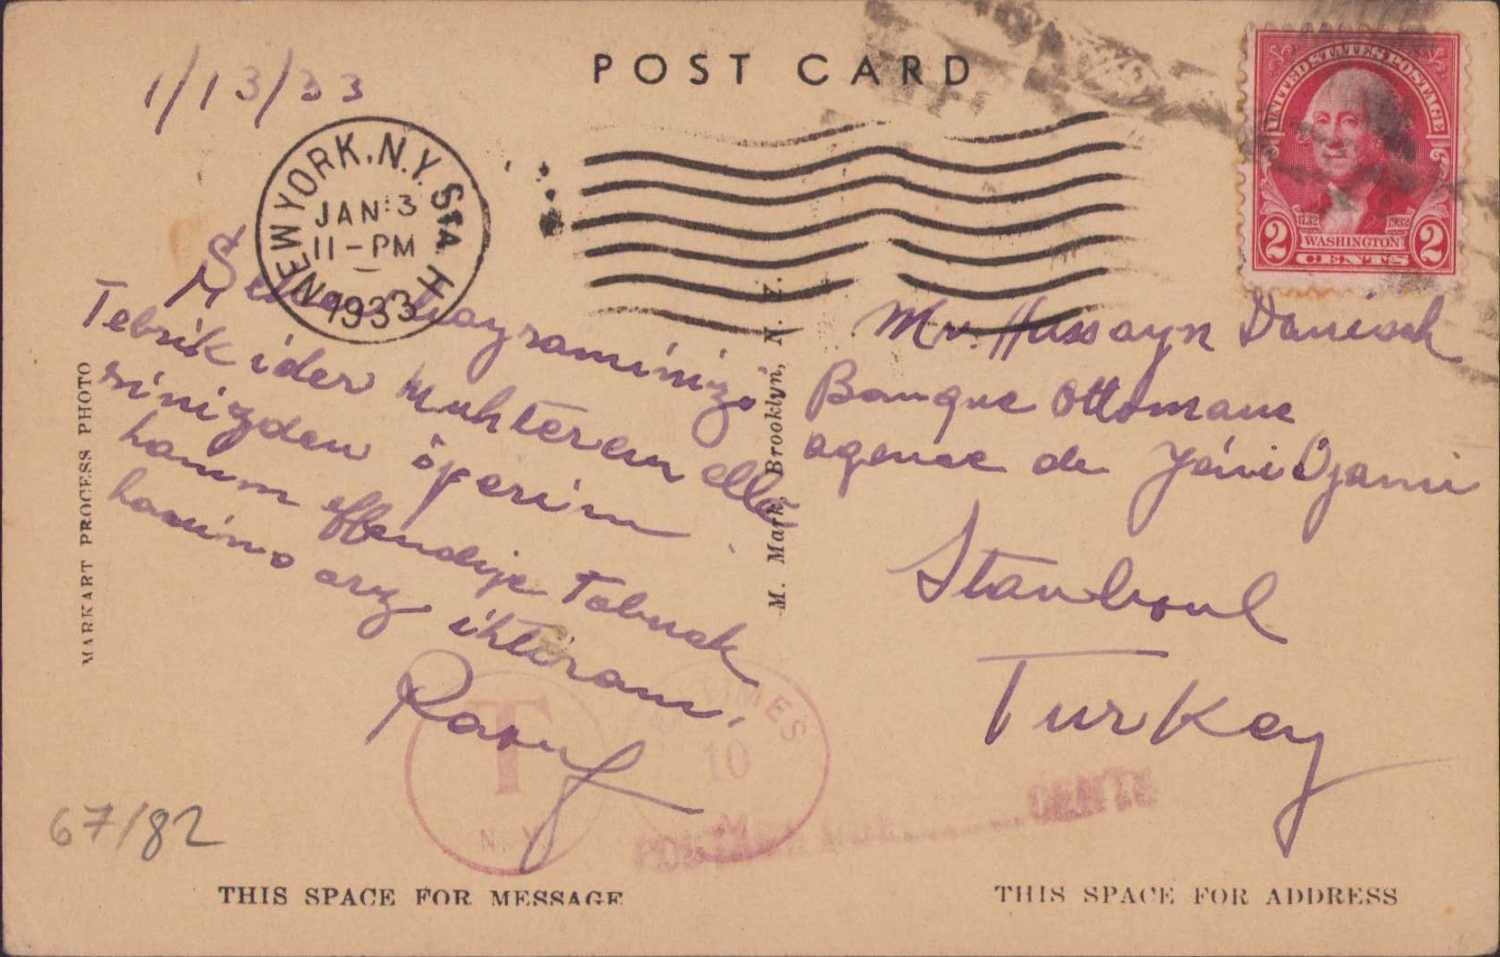 POST CARD
1/13/33
NEW YORK, N.Y. StA H
JAN 13
11-PM
1933
UNITED STATES POSTAGE
1732 1932
WASHINGTON
2 CENTS 2
bayraminizi
Tebrik ider muhterem elle
rinizden öperim
hanım effendije Tabusk
hasimo arz ihtiram.
Raouf
Mr. Hussayn Danisch
Banque Ottomane
agence de Jéni Djami
Stanboul
Turkey
MARKART PROCESS PHOTO
M. Mark, Brooklyn, N. Y.
T
N.Y.
CENTIMES
10
POSTAGE DUE CENTS
67/82
THIS SPACE FOR MESSAGE
THIS SPACE FOR ADDRESS